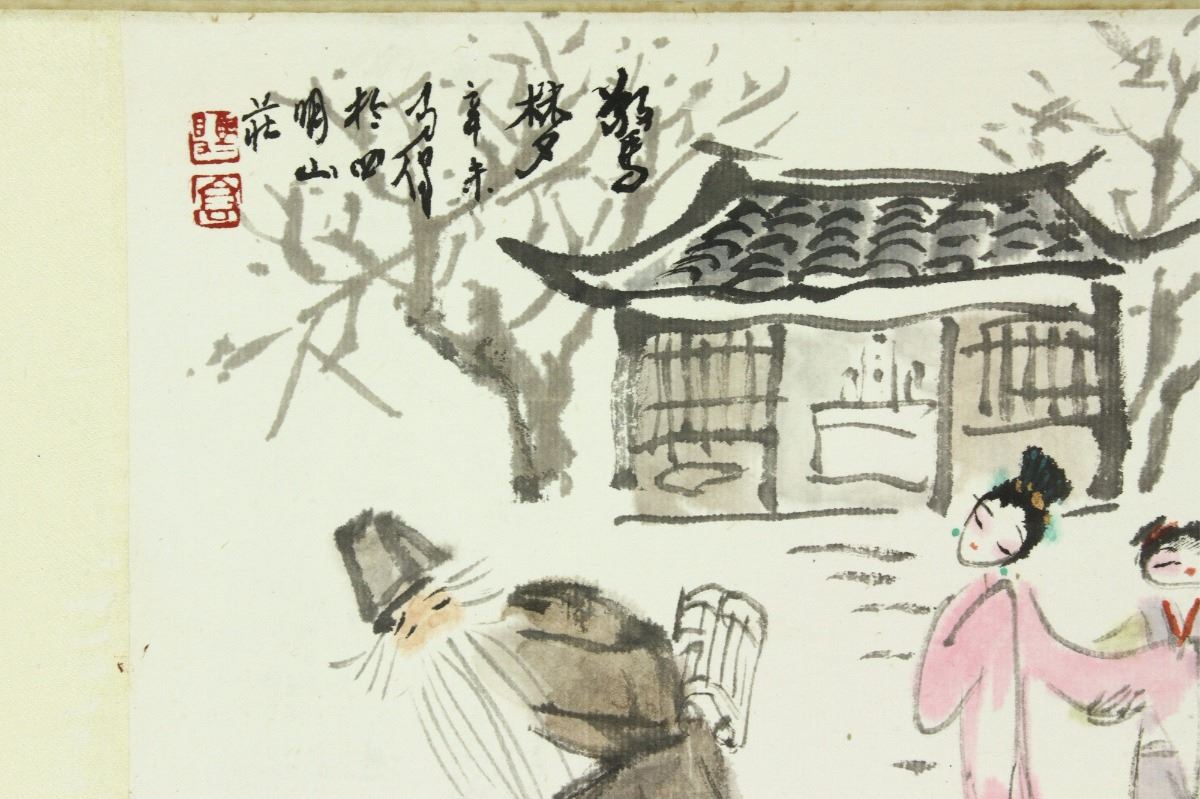 驚
梦
辛未
马得
於四
明山
莊